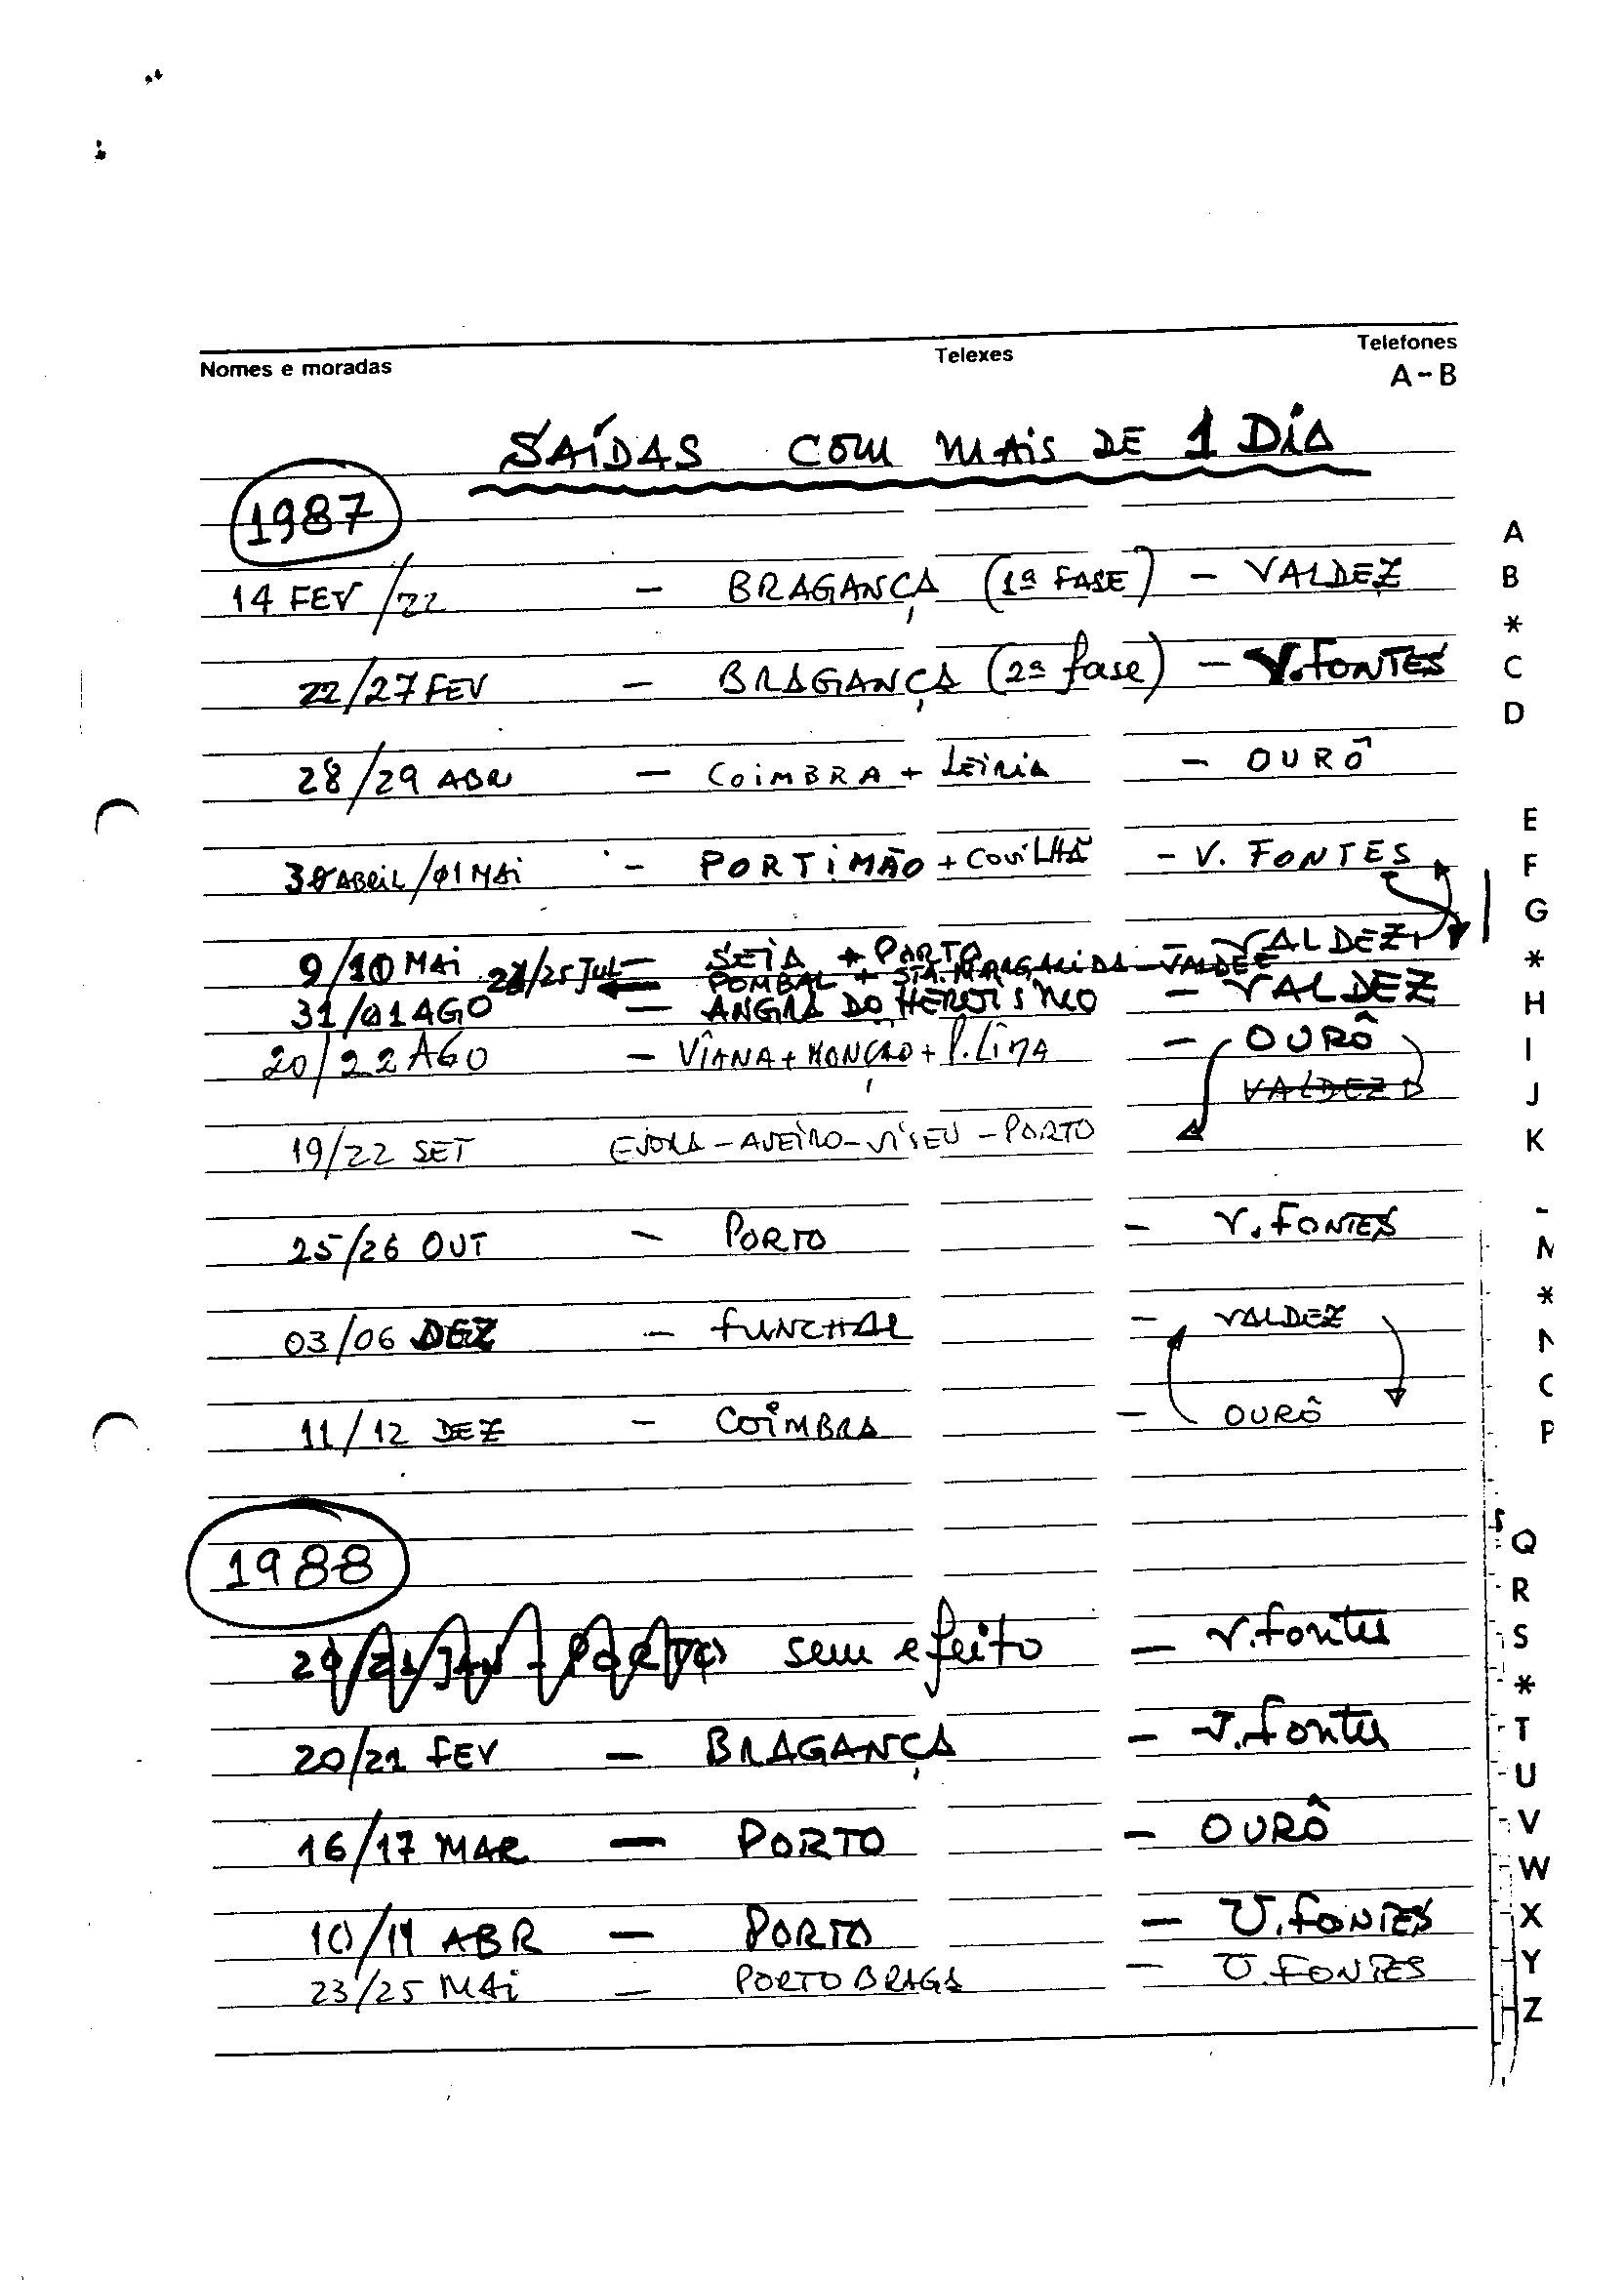 Nomes e moradas Telexes Telefones
A-B
SAÍDAS COM MAIS DE 1 DIA
1987
14 FEV/22 - BRAGANÇA (1ª FASE) - VALDEZ
22/27 FEV - BRAGANÇA (2ª fase) - V. FONTES
28/29 ABR - COIMBRA + LEIRIA - OURÔ
30 ABRIL/01 MAI - PORTIMÃO + COVILHÃ - V. FONTES
9/10 MAI - SEIA + PORTO - VALDEZ
/25 JUL - POMBAL + STA. MARGARIDA - VALDEZ
31/01 AGO - ANGRA DO HEROISMO - VALDEZ
20/22 AGO - VIANA + MONÇÃO + P. LIMA - OURÔ
VALDEZ
19/22 SET EVORA - AVEIRO - VISEU - PORTO
25/26 OUT - PORTO - V. FONTES
03/06 DEZ - FUNCHAL - VALDEZ
11/12 DEZ - COIMBRA - OURÔ
1988
20/21 JAN - PORTO sem efeito - V. fontes
20/21 FEV - BRAGANÇA - V. fontes
16/17 MAR - PORTO - OURÔ
10/11 ABR - PORTO - V. FONTES
23/25 MAI - PORTO BRAGA - V. FONTES
A
B
*
C
D
E
F
G
*
H
I
J
K
-
M
*
N
P
Q
R
S
*
T
U
V
W
X
Y
Z